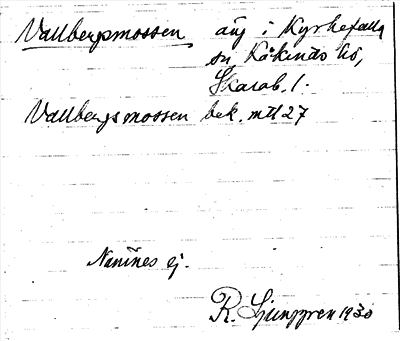 Vallbergsmossen äng i Kyrkefalla
sn, Kåkinds hd,
Skarab. l.
Vallbergsmossen bek. mtl 27
Nämnes ej.
R. Ljunggren 1930